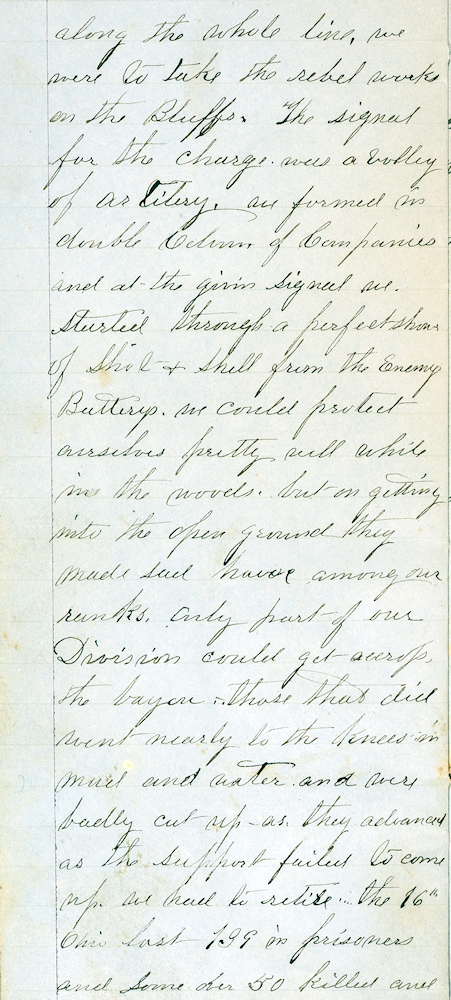 along the whole line, we
were to take the rebel works
on the Bluffs. The signal
for the charge was a volley
of artilery. we formed in
double Colum of Companies
and at the givin signal we.
started through a perfect show
of Shot & Shell from the Enemy
Batterys. we could protect
ourselves pretty well while
in the woods. but on getting
into the open ground they
made sad havoc among our
ranks. only part of our
Division could get accross
the bayou. those that did
went nearly to the knees in
mud and water and were
badly cut up as they advanced
as the support failed to come
up. we had to retire. the 16th
Ohio lost 139 in prisoners
and some over 50 killed and